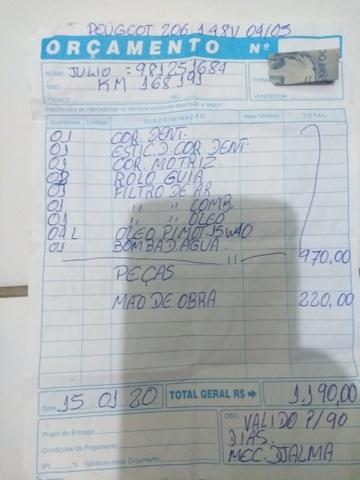 PEUGEOT 206 1.4 8V 04/05
ORÇAMENTO Nº
NOME: JULIO = 981251684
END. KM 168191
CIDADE
FIRMA
VENDEDOR
Preços para as mercadorias ou serviços conforme descrição a seguir:
Quantidade Unidade DISCRIMINAÇÃO Valor Unitário TOTAL
01 COR. DENT.
01 ESTIC. D. COR. DENT.
01 COR. MOTRIZ
ROLO GUIA
01 FILTRO DE AR
01 " " COMB.
01 " " OLEO
04 L OLEO P/MOT. 15W40
01 BOMBA D. AGUA.
" 970,00
PEÇAS
MAO DE OBRA 220,00
Data 15 01 20 TOTAL GERAL R$ 1.190,00
Prazo de Entrega
Condições de Pagamento
IPI % Validade deste Orçamento
OBS. VALIDO P/90
DIAS.
MEC. DJALMA